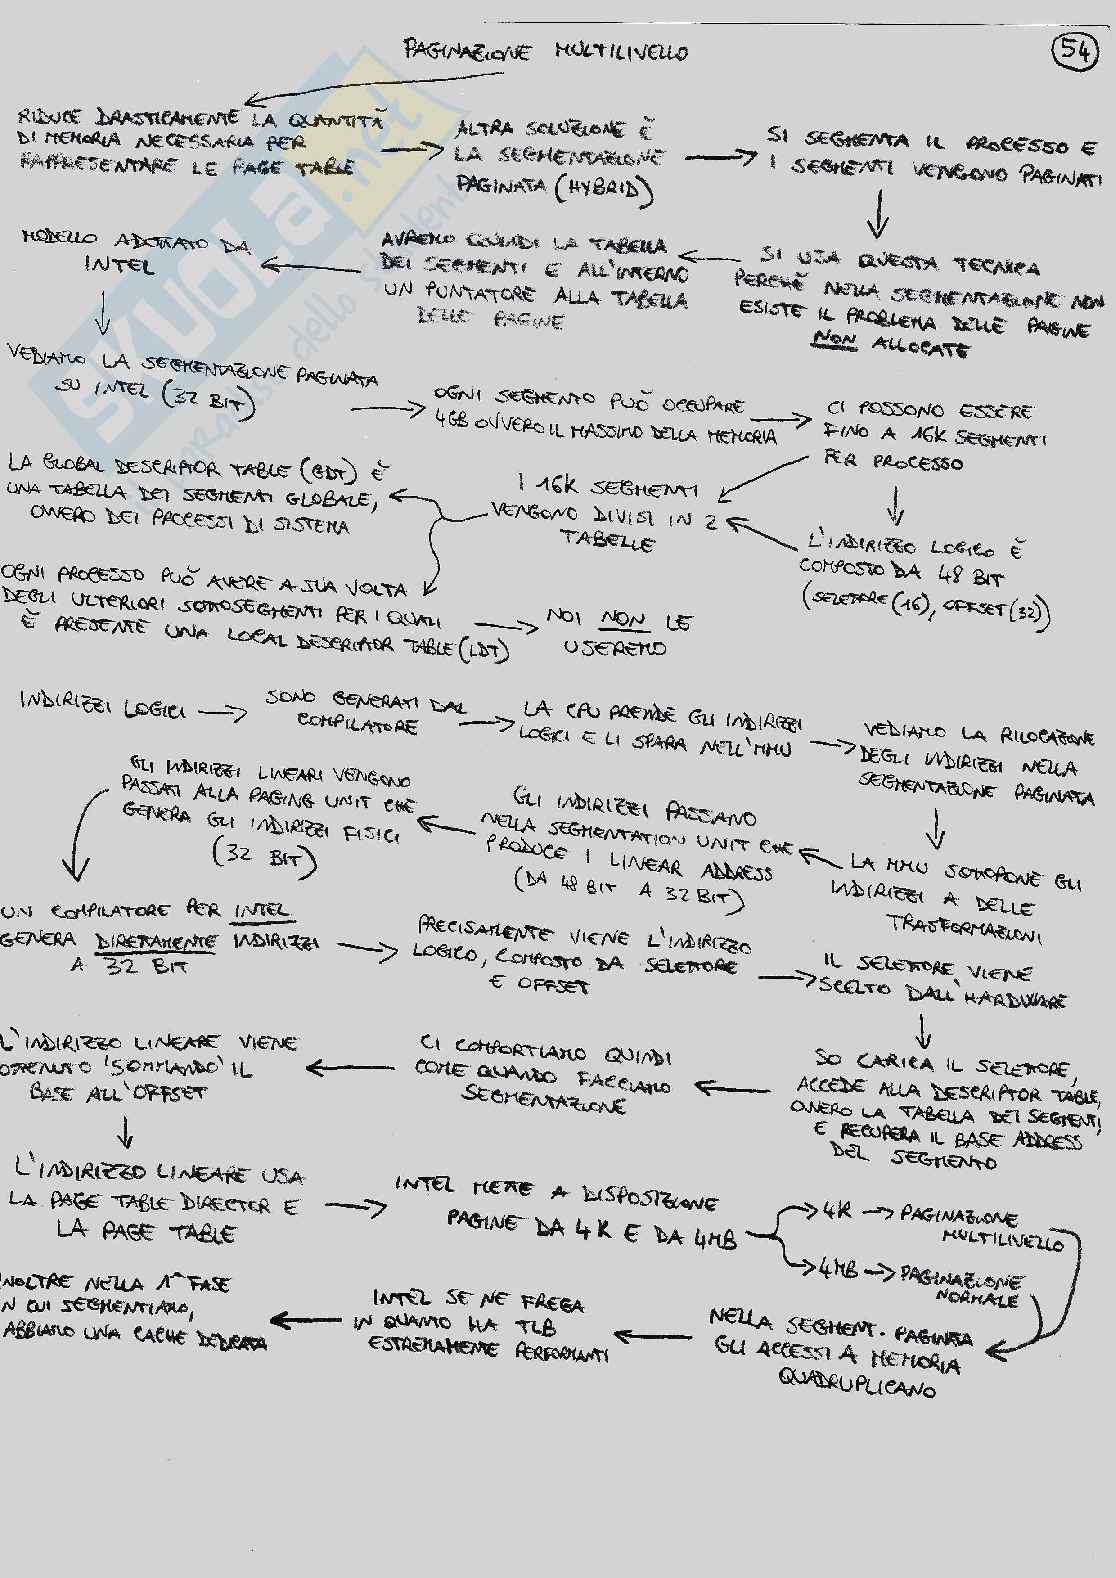 54
PAGINAZIONE MULTILIVELLO
RIDUCE DRASTICAMENTE LA QUANTITÀ
DI MEMORIA NECESSARIA PER
RAPPRESENTARE LE PAGE TABLE
ALTRA SOLUZIONE È
LA SEGMENTAZIONE
PAGINATA (HYBRID)
SI SEGMENTA IL PROCESSO E
I SEGMENTI VENGONO PAGINATI
SI USA QUESTA TECNICA
PERCHÈ NELLA SEGMENTAZIONE NON
ESISTE IL PROBLEMA DELLE PAGINE
NON ALLOCATE
AVREMO QUINDI LA TABELLA
DEI SEGMENTI E ALL'INTERNO
UN PUNTATORE ALLA TABELLA
DELLE PAGINE
MODELLO ADOTTATO DA
INTEL
VEDIAMO LA SEGMENTAZIONE PAGINATA
SU INTEL (32 BIT)
OGNI SEGMENTO PUÒ OCCUPARE
4GB OVVERO IL MASSIMO DELLA MEMORIA
CI POSSONO ESSERE
FINO A 16K SEGMENTI
PER PROCESSO
L'INDIRIZZO LOGICO È
COMPOSTO DA 48 BIT
(SELETTORE (16), OFFSET (32))
I 16K SEGMENTI
VENGONO DIVISI IN 2
TABELLE
LA GLOBAL DESCRIPTOR TABLE (GDT) È
UNA TABELLA DEI SEGMENTI GLOBALE,
OVVERO DEI PROCESSI DI SISTEMA
OGNI PROCESSO PUÒ AVERE A SUA VOLTA
DEGLI ULTERIORI SOTTOSEGMENTI PER I QUALI
È PRESENTE UNA LOCAL DESCRIPTOR TABLE (LDT)
NOI NON LE
USEREMO
INDIRIZZI LOGICI
SONO GENERATI DAL
COMPILATORE
LA CPU PRENDE GLI INDIRIZZI
LOGICI E LI SPARA NELL'MMU
VEDIAMO LA RILOCAZIONE
DEGLI INDIRIZZI NELLA
SEGMENTAZIONE PAGINATA
LA MMU SOTTOPONE GLI
INDIRIZZI A DELLE
TRASFORMAZIONI
GLI INDIRIZZI PASSANO
NELLA SEGMENTATION UNIT CHE
PRODUCE I LINEAR ADDRESS
(DA 48 BIT A 32 BIT)
GLI INDIRIZZI LINEARI VENGONO
PASSATI ALLA PAGING UNIT CHE
GENERA GLI INDIRIZZI FISICI
(32 BIT)
UN COMPILATORE PER INTEL
GENERA DIRETTAMENTE INDIRIZZI
A 32 BIT
PRECISAMENTE VIENE L'INDIRIZZO
LOGICO, COMPOSTO DA SELETTORE
E OFFSET
IL SELETTORE VIENE
SCELTO DALL'HARDWARE
SO CARICA IL SELETTORE,
ACCEDE ALLA DESCRIPTOR TABLE,
OVVERO LA TABELLA DEI SEGMENTI,
E RECUPERA IL BASE ADDRESS
DEL SEGMENTO
CI COMPORTIAMO QUINDI
COME QUANDO FACCIAMO
SEGMENTAZIONE
L'INDIRIZZO LINEARE VIENE
OTTENUTO 'SOMMANDO' IL
BASE ALL'OFFSET
L'INDIRIZZO LINEARE USA
LA PAGE TABLE DIRECTOR E
LA PAGE TABLE
INTEL METTE A DISPOSIZIONE
PAGINE DA 4K E DA 4MB
4K → PAGINAZIONE
MULTILIVELLO
4MB → PAGINAZIONE
NORMALE
NELLA SEGMENT. PAGINATA
GLI ACCESSI A MEMORIA
QUADRUPLICANO
INTEL SE NE FREGA
IN QUANTO HA TLB
ESTREMAMENTE PERFORMANTI
INOLTRE NELLA 1ª FASE
IN CUI SEGMENTIAMO,
ABBIAMO UNA CACHE DEDICATA
skuola.net